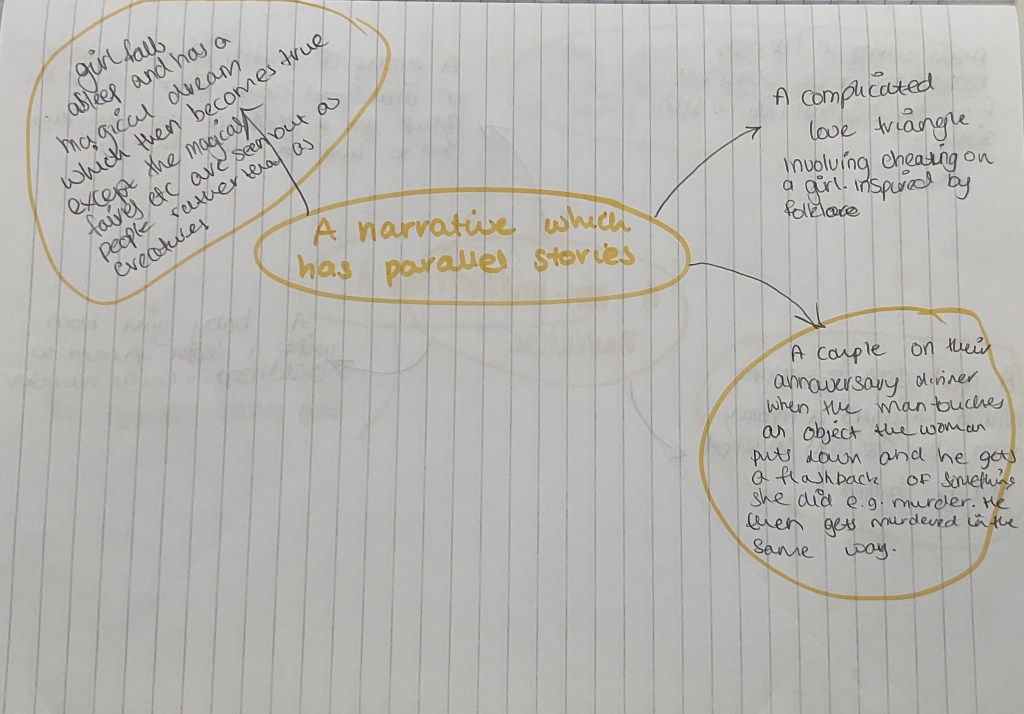 girl falls
asleep and has a
magical dream
which then becomes true
except the magical
fairies etc are seen but as
people rather than as
creatures
A narrative which
has parallel stories
A complicated
love triangle
involving cheating on
a girl. inspired by
folklore
A couple on their
anniversary dinner
when the man touches
an object the woman
puts down and he gets
a flashback of something
she did e.g. murder. He
then gets murdered in the
same way.